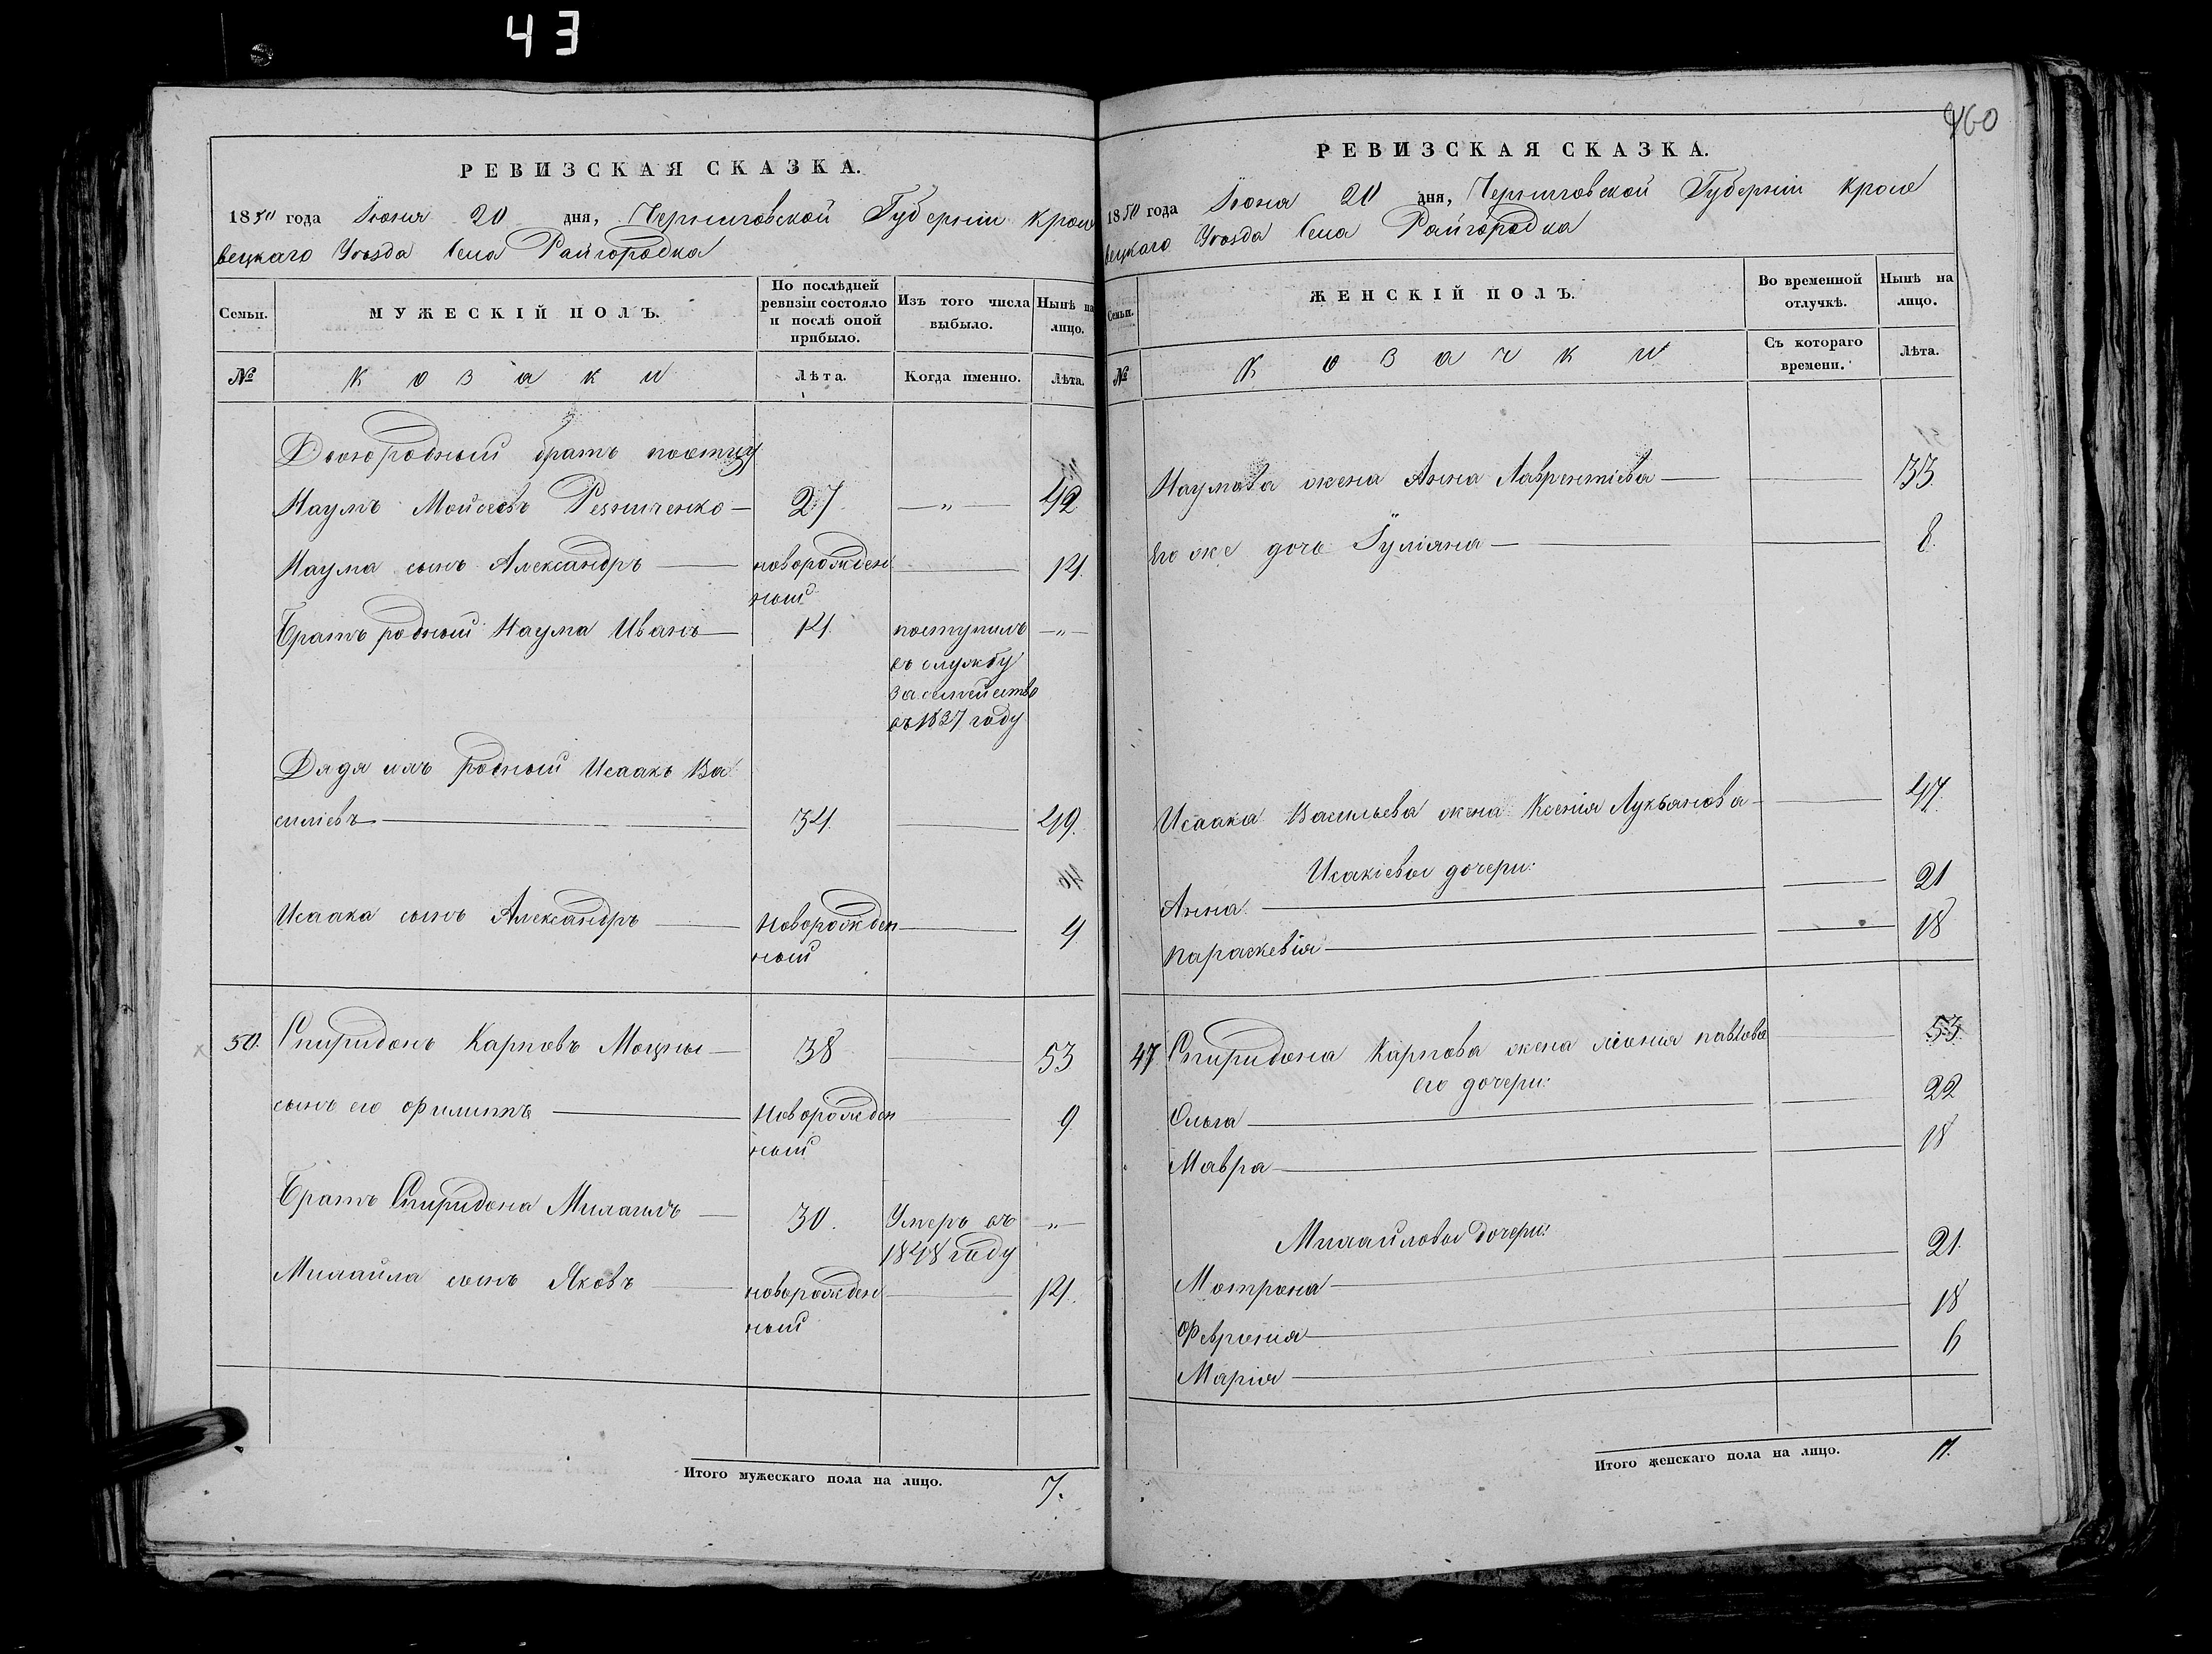 43
РЕВИЗСКАЯ СКАЗКА.
1850 года Іюня 20 дня, Черниговской Губерніи Кроле
вецкаго Уѣзда Села Райгородка
Семьи.
МУЖЕСКІЙ ПОЛЪ.
По послѣдней
ревизіи состояло
и послѣ оной
прибыло.
Изъ того числа
выбыло.
Нынѣ на
лицо.
№
Козаки
Лѣта.
Когда именно.
Лѣта.
Двоюродный братъ
Наумъ Мойсеевъ 27 — „ — 42
Наума сынъ Александръ — новорожден — 14.
ный
Братъ родный Наума Иванъ — 14. поступилъ — „ —
въ службу
за семейство
въ 1837 году
Дядя ихъ родный Исаакъ Ва
силіевъ — 34. — 49.
Исаака сынъ Александръ — Новорожден — 4
ный
50. Спиридонъ Карповъ Моцны — 38 — 53
сынъ его Филиппъ — Новорожден — 9
ный
Братъ Спиридона Михаилъ — 30. Умеръ въ — „ —
1848 году
Михаила сынъ Яковъ — новорожден — 14.
ный
Итого мужескаго пола на лицо. 7.
460
РЕВИЗСКАЯ СКАЗКА.
1850 года Іюня 20 дня, Черниговской Губерніи Кроле
вецкаго Уѣзда Села Райгородка
Семьи.
ЖЕНСКІЙ ПОЛЪ.
Во временной
отлучкѣ.
Нынѣ на
лицо.
№
Козачки
Съ котораго
времени.
Лѣта.
Наумова жена Анна Лаврентіева — — 33.
Его же дочь Іуліяна — — 8.
Исаака Васильева жена Ксенія Лукьянова — — 47.
Исакіевы дочери:
Анна — — 21
Параскевія — — 18
47 Спиридона Карпова жена Павлова — 53.
его дочери:
Ольга — — 22
Мавра — — 18
Михайловы дочери:
Мотрона — — 21.
Февронія — — 18
Марія — — 6
Итого женскаго пола на лицо. 11.